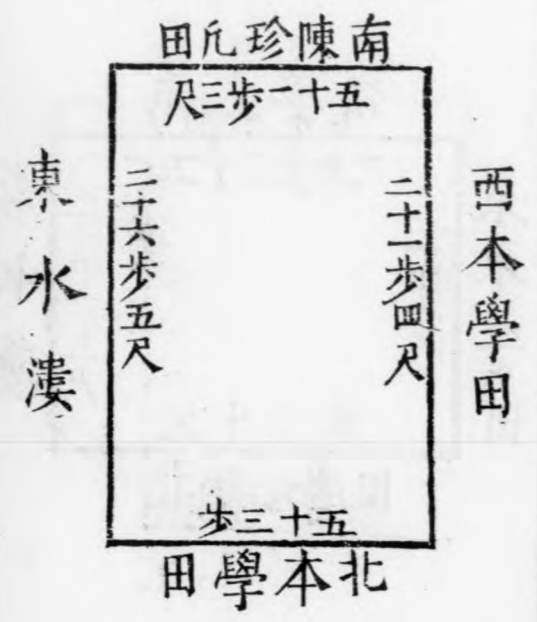 南陳珍凢田
五十一步三尺
西本學田
二十一步四尺
二十六步五尺
東水漊
五十三步
北本學田